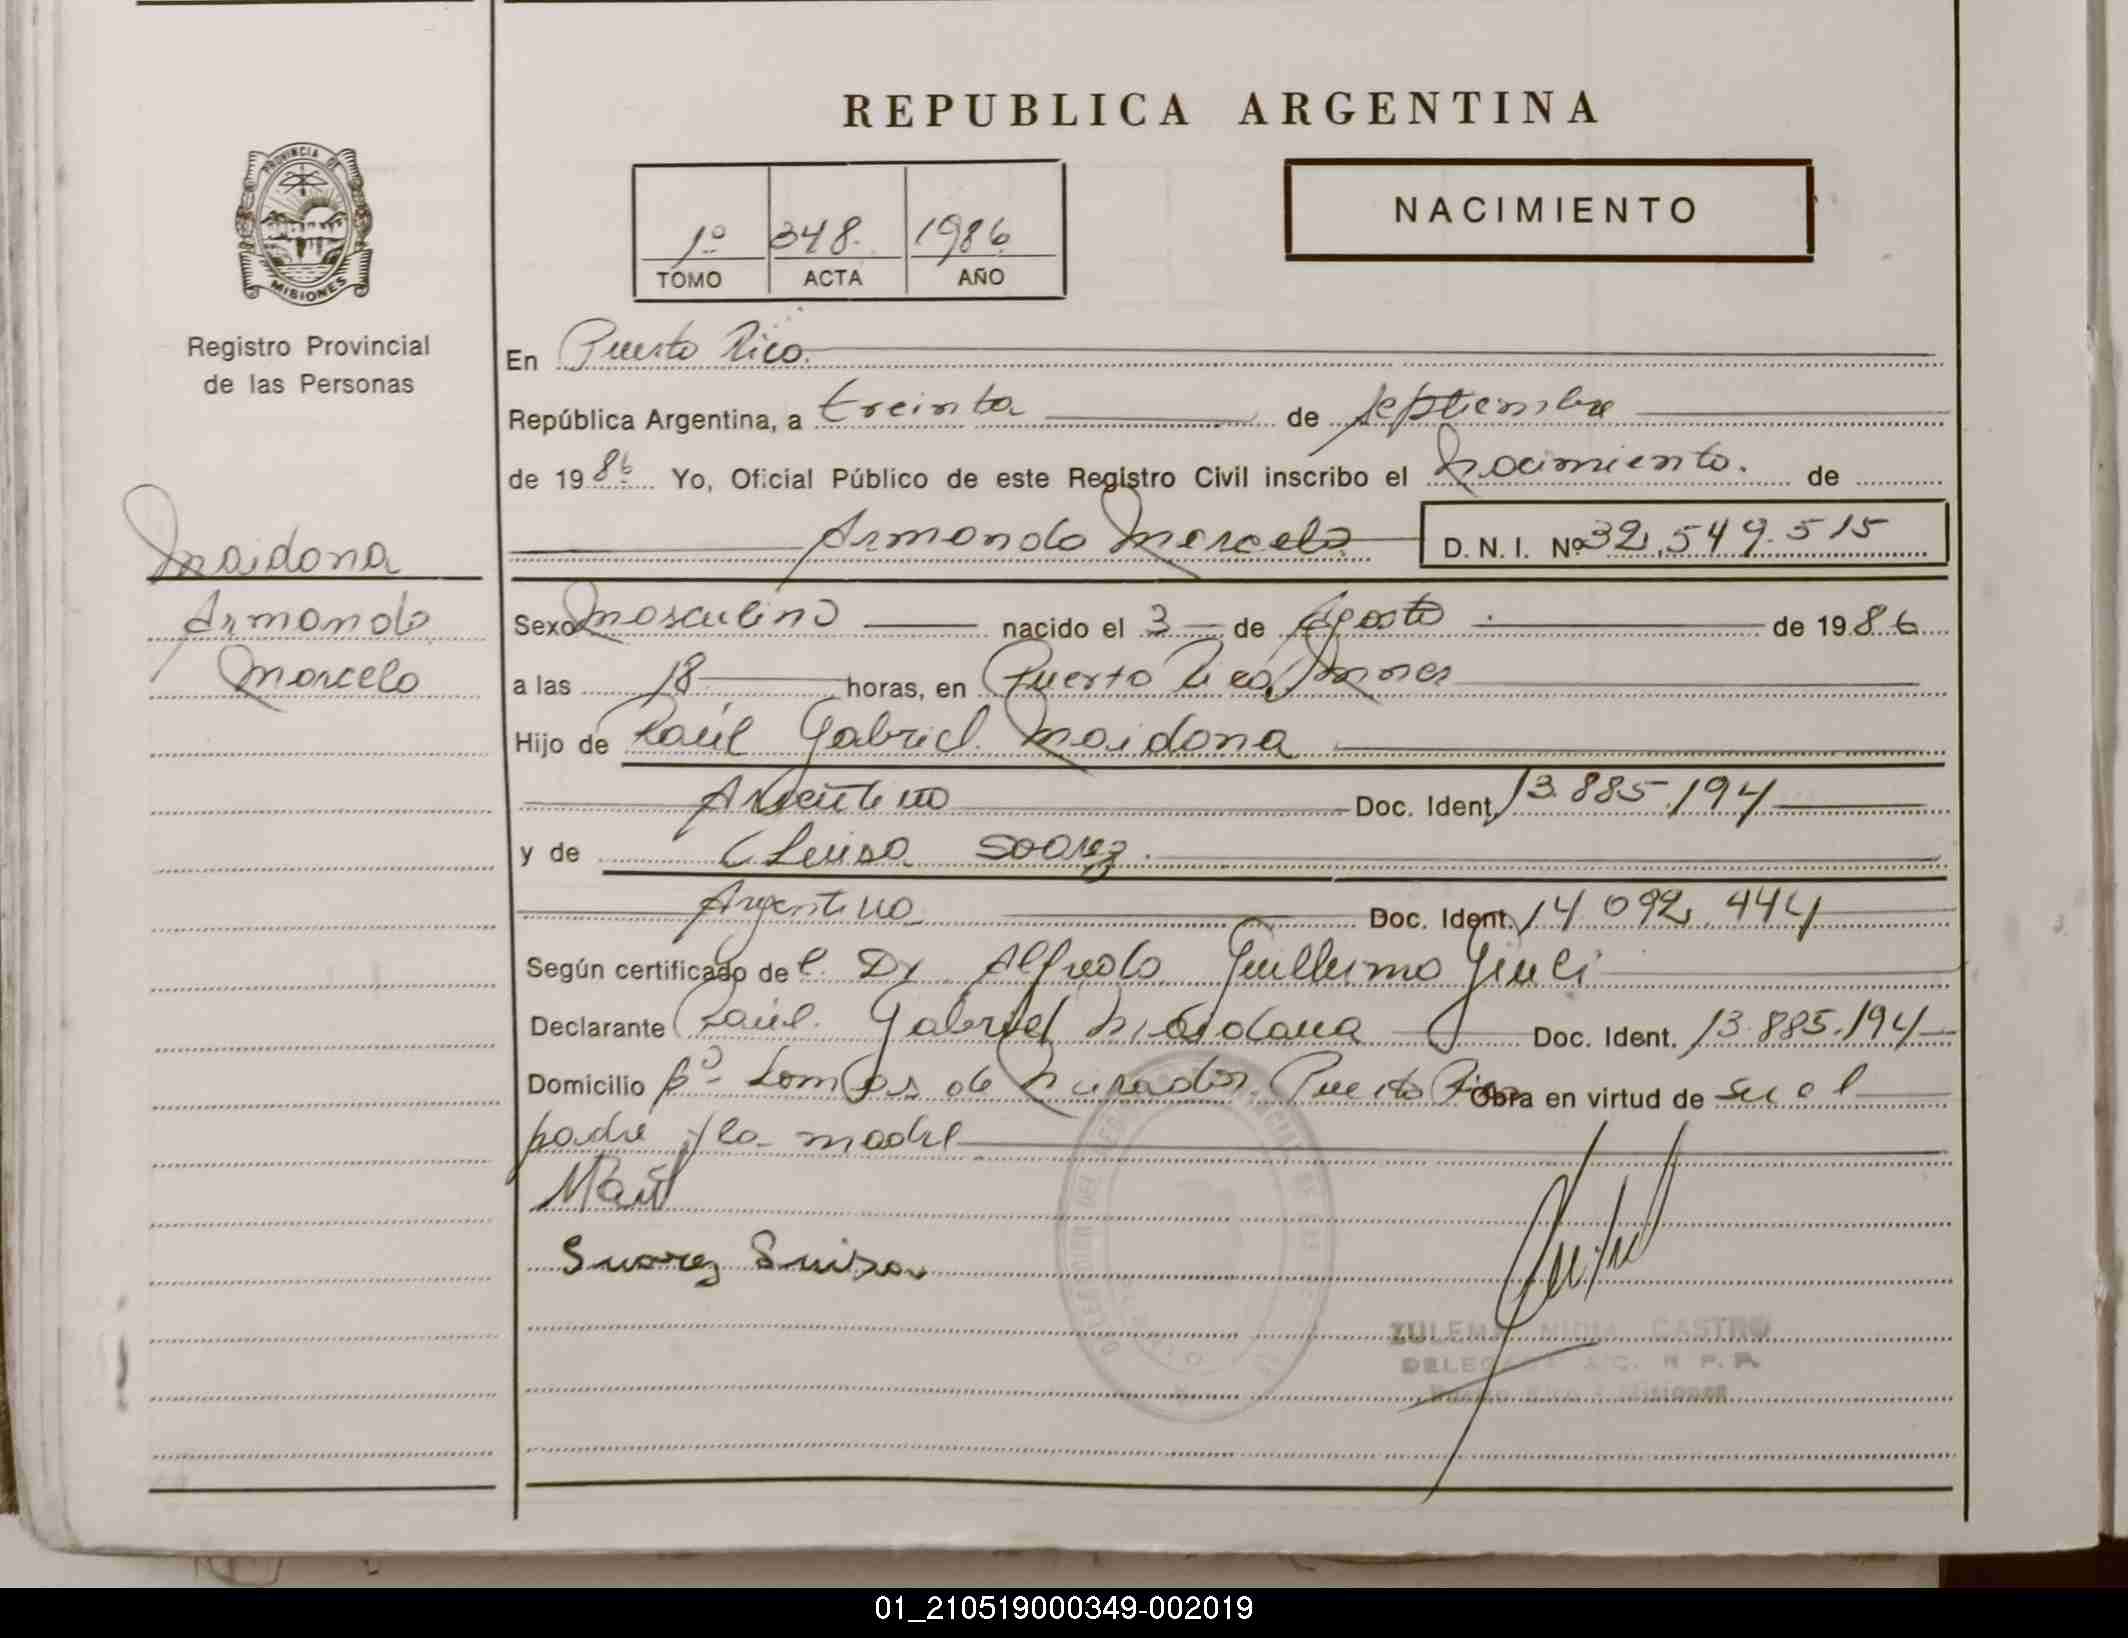 REPUBLICA ARGENTINA
PROVINCIA DE MISIONES
1º 348. 1986
TOMO ACTA AÑO
NACIMIENTO
Registro Provincial
de las Personas
Maidana
Armando
Marcelo
En Puerto Rico.
República Argentina, a treinta de septiembre
de 1986 Yo, Oficial Público de este Registro Civil inscribo el Nacimiento. de
Armando Marcelo D. N. I. Nº 32.549.515
Sexo Masculino nacido el 3 de Agosto de 1986
a las 18 horas, en Puerto Rico, Mnes
Hijo de Raúl Gabriel Maidana
Argentino Doc. Ident. 13.885.194
y de Luisa Soarez.
Argentina Doc. Ident. 14.092.444
Según certificado del Dr Alfredo Guillermo Giuli
Declarante Raúl Gabriel Maidana Doc. Ident. 13.885.194
Domicilio Bº Lomas de Mirador. Puerto Rico Obra en virtud de ser el
padre y la madre
Suarez Luisa
ZULEMA NIDIA CASTRO
DELEGADA R. P. P.
Puerto Rico - Misiones
01_210519000349-002019